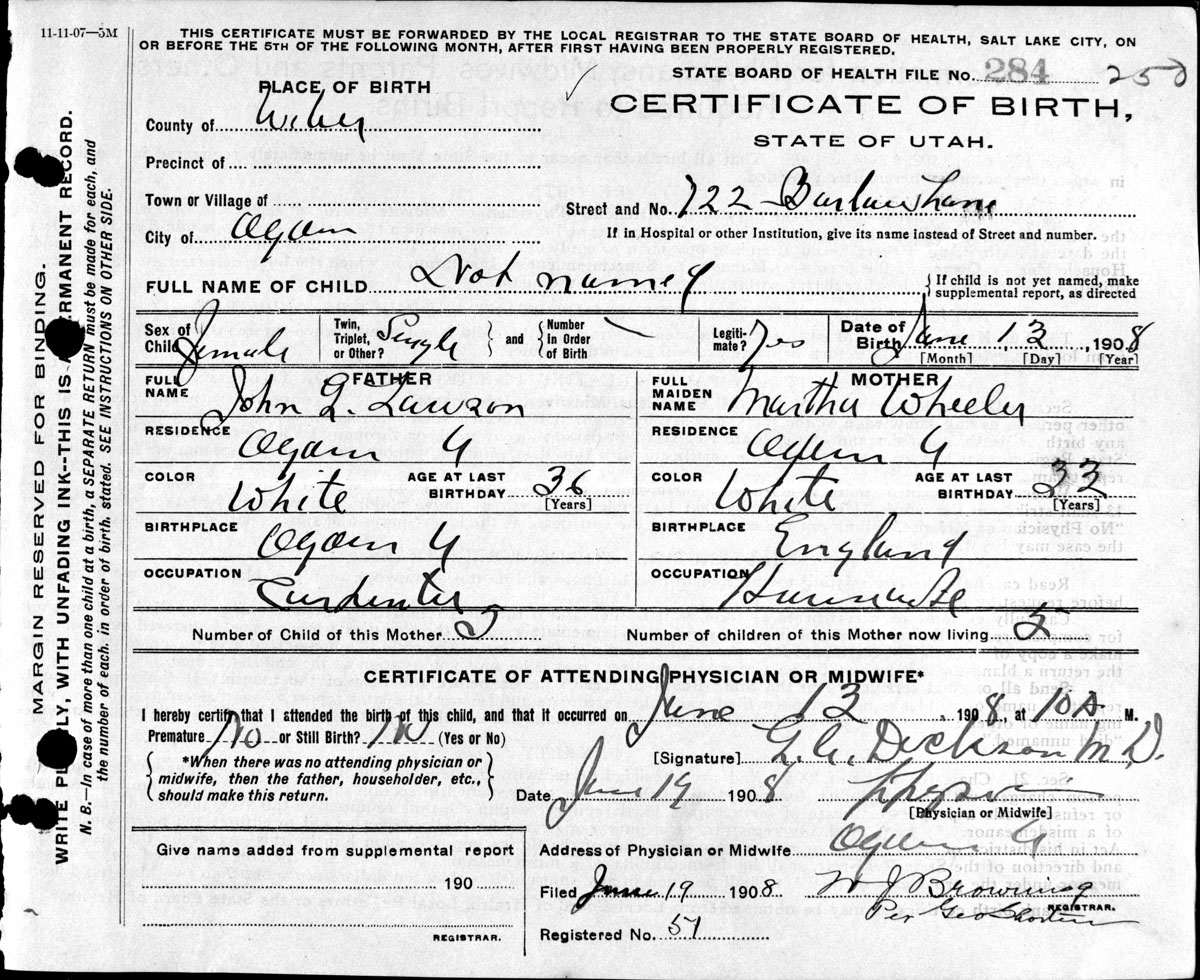 11-11-07—5M
THIS CERTIFICATE MUST BE FORWARDED BY THE LOCAL REGISTRAR TO THE STATE BOARD OF HEALTH, SALT LAKE CITY, ON
OR BEFORE THE 5TH OF THE FOLLOWING MONTH, AFTER FIRST HAVING BEEN PROPERLY REGISTERED.
STATE BOARD OF HEALTH FILE No. 284 250
PLACE OF BIRTH
CERTIFICATE OF BIRTH,
STATE OF UTAH.
County of Weber
Precinct of
Town or Village of
Street and No. 722
City of Ogden
If in Hospital or other Institution, give its name instead of Street and number.
FULL NAME OF CHILD Not named
{If child is not yet named, make
supplemental report, as directed
Sex of Child Female
Twin, Triplet, or Other? Single and {Number In Order of Birth
Legiti- mate? Yes
Date of Birth June 13, 1908
[Month] [Day] [Year]
FATHER
FULL NAME John G. Lawson
RESIDENCE Ogden U
COLOR White AGE AT LAST BIRTHDAY 36
[Years]
BIRTHPLACE Ogden U
OCCUPATION Carpenter
MOTHER
FULL MAIDEN NAME Martha Wheeler
RESIDENCE Ogden U
COLOR White AGE AT LAST BIRTHDAY 33
[Years]
BIRTHPLACE England
OCCUPATION Housewife
Number of Child of this Mother 5 Number of children of this Mother now living 5
CERTIFICATE OF ATTENDING PHYSICIAN OR MIDWIFE*
I hereby certify that I attended the birth of this child, and that it occurred on June 13, 1908, at 10 A M.
Premature No or Still Birth? No (Yes or No)
[Signature] Dickson M.D.
{*When there was no attending physician or
midwife, then the father, householder, etc.,
should make this return.}
Date June 19 1908
[Physician or Midwife]
Address of Physician or Midwife Ogden U
Give name added from supplemental report
190
REGISTRAR.
Filed June 19 1908 W J Browning
REGISTRAR.
Per Geo
Registered No. 51
MARGIN RESERVED FOR BINDING.
WRITE PLAINLY, WITH UNFADING INK--THIS IS A PERMANENT RECORD.
N. B.—In case of more than one child at a birth, a SEPARATE RETURN must be made for each, and
the number of each. in order of birth, stated. SEE INSTRUCTIONS ON OTHER SIDE.